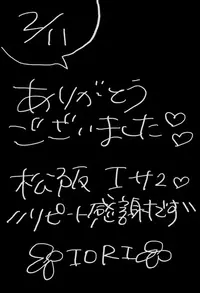 2/11
ありがとう
ございました♡
松阪 Iサ2♡
リピート感謝です
IORI